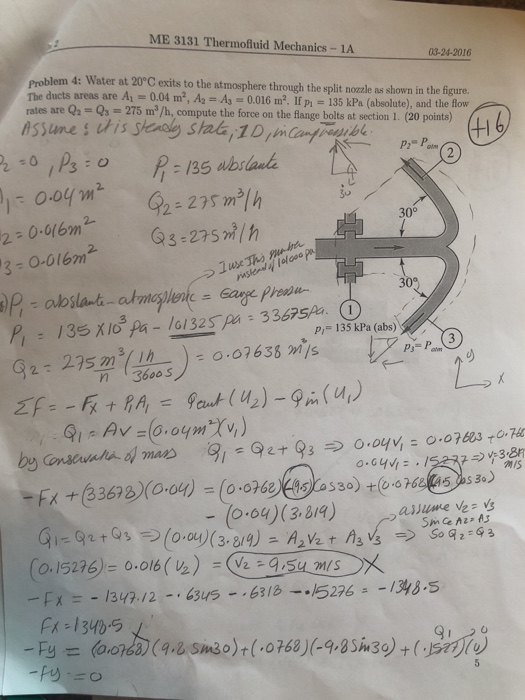 ME 3131 Thermofluid Mechanics – 1A
03-24-2016
Problem 4: Water at 20°C exits to the atmosphere through the split nozzle as shown in the figure.
The ducts areas are A₁ = 0.04 m², A₂ = A₃ = 0.016 m². If p₁ = 135 kPa (absolute), and the flow
rates are Q₂ = Q₃ = 275 m³/h, compute the force on the flange bolts at section 1. (20 points)
+16
Assume: it is steady state, 1D, incompressible.
P₂ = 0, P₃ = 0
P₁ = 135 abslaute
A₁ = 0.04 m²
Q₂ = 275 m³/h
A₂ = 0.016 m²
Q₃ = 275 m³/h
A₃ = 0.016 m²
p₂= Pₐₜₘ
2
30°
30°
1
p₁= 135 kPa (abs)
3
p₃= Pₐₜₘ
y
x
I use This number
instead of 101000 pa
P₁ = abslaute - atmospheric = Gauge Pressure
P₁ = 135 X10³ Pa - 101325 Pa = 33675 Pa.
Q₂ = 275 m³/h (1h/3600s) = 0.07638 m³/s
ΣF = -Fx + P₁A₁ = ρout(U₂) - ρin(U₁)
Q₁ = AV = (0.04m²)(V₁)
by conservation of mass Q₁ = Q₂ + Q₃ ⇒ 0.04V₁ = 0.07603 + 0.760
0.04V₁ = .15277 ⇒ V₁ = 3.819 m/s
-Fx + (33678)(0.04) = (0.0768)(9.5)(cos30) + (0.0768)(9.5 cos 30)
- (0.04)(3.819)
assume V₂ = V₃
Since A₂ = A₃
So Q₂ = Q₃
Q₁ = Q₂ + Q₃ ⇒ (0.04)(3.819) = A₂V₂ + A₃V₃ ⇒
(0.15276) = 0.016(V₂) = V₂ = 9.54 m/s X
-Fx = -1347.12 - .6345 - .6318 - .15276 = -1348.5
Fx = 1348.5 X
-Fy = (0.0768)(9.8 sin30) + (.0768)(-9.8 Sin30) + (.1527)(0)
Q₁ 0
-Fy = 0
5